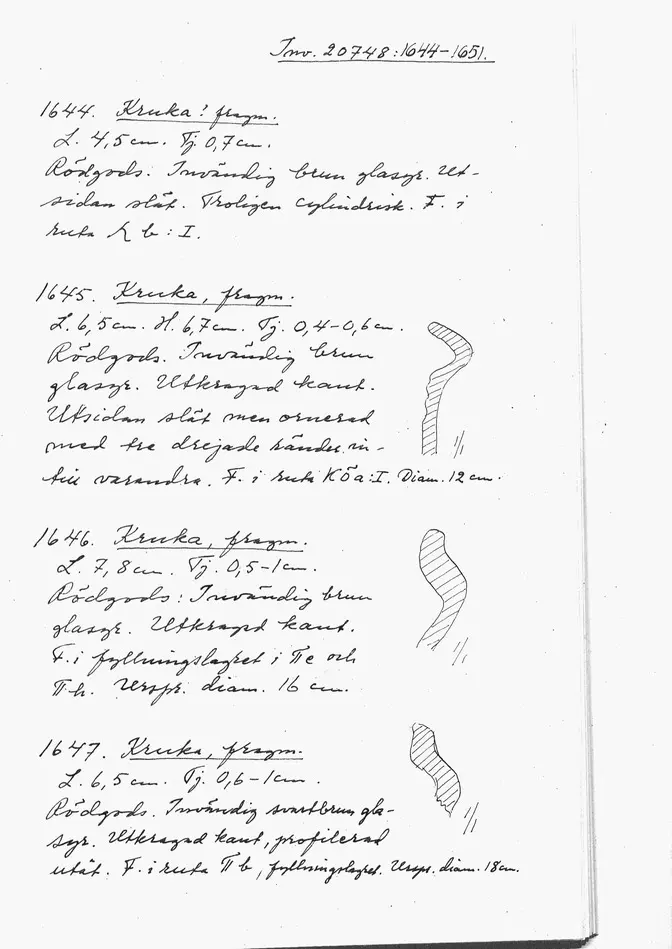 Inv. 20748:1644-1651.
1644. Kruka? fragm.
L. 4,5 cm. Tj. 0,7 cm.
Rödgods. Invändig brun glasyr. Ut-
sidan slät. Troligen cylindrisk. F. i
ruta b : I.
1645. Kruka, fragm.
L. 6,5 cm. H. 6,7 cm. Tj. 0,4-0,6 cm.
Rödgods. Invändig brun
glasyr. Utkragad kant.
Utsidan slät men ornerad
med tre drejade ränder in-
till varandra. F. i ruta Köa:I. Diam. 12 cm.
1646. Kruka, fragm.
L. 7,8 cm. Tj. 0,5-1 cm.
Rödgods: Invändig brun
glasyr. Utkragad kant.
F. i fyllningslagret i Πc och
Πh. Urspr. diam. 16 cm.
1647. Kruka, fragm.
L. 6,5 cm. Tj. 0,6-1 cm.
Rödgods. Invändig svartbrun gla-
syr. Utkragad kant, profilerad
utåt. F. i ruta Π b, fyllningslagret. Urspr. diam. 18 cm.